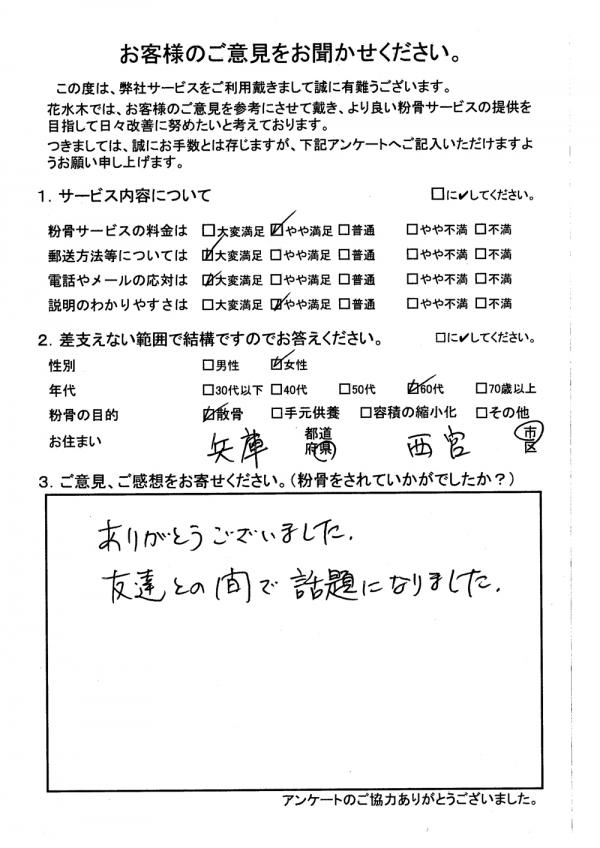 お客様のご意見をお聞かせください。
この度は、弊社サービスをご利用戴きまして誠に有難うございます。
花水木では、お客様のご意見を参考にさせて戴き、より良い粉骨サービスの提供を
目指して日々改善に努めたいと考えております。
つきましては、誠にお手数とは存じますが、下記アンケートへご記入いただけますよ
うお願い申し上げます。
1．サービス内容について □に✔してください。
粉骨サービスの料金は □大変満足 ☑やや満足 □普通 □やや不満 □不満
郵送方法等については ☑大変満足 □やや満足 □普通 □やや不満 □不満
電話やメールの応対は ☑大変満足 □やや満足 □普通 □やや不満 □不満
説明のわかりやすさは □大変満足 ☑やや満足 □普通 □やや不満 □不満
2．差支えない範囲で結構ですのでお答えください。 □に✔してください。
性別 □男性 ☑女性
年代 □30代以下 □40代 □50代 ☑60代 □70歳以上
粉骨の目的 ☑散骨 □手元供養 □容積の縮小化 □その他
お住まい 兵庫 都道府県 西宮 市区
3．ご意見、ご感想をお寄せください。（粉骨をされていかがでしたか？）
ありがとうございました.
友達との間で話題になりました.
アンケートのご協力ありがとうございました。